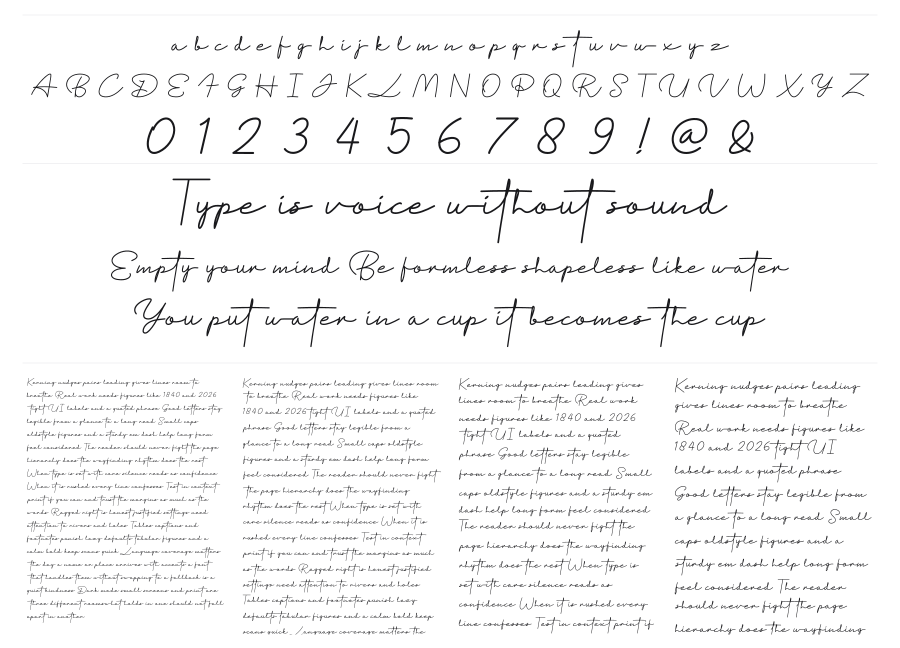 a b c d e f g h i j k l m n o p q r s t u v w x y z
A B C D E F G H I J K L M N O P Q R S T U V W X Y Z
0 1 2 3 4 5 6 7 8 9 ! @ &
Type is voice without sound
Empty your mind Be formless shapeless like water
You put water in a cup it becomes the cup
Kerning nudges pairs leading gives lines room to
breathe Real work needs figures like 1840 and 2026
tight UI labels and a quoted phrase Good letters stay
legible from a glance to a long read Small caps
oldstyle figures and a sturdy em dash help long form
feel considered The reader should never fight the page
hierarchy does the wayfinding rhythm does the rest
When type is set with care silence reads as confidence
When it is rushed every line confesses Test in context
print if you can and trust the margins as much as the
words Ragged right is honest justified settings need
attention to rivers and holes Tables captions and
footnotes punish lazy defaults tabular figures and a
calm bold keep scans quick Language coverage matters
the day a name or place arrives with accents a font
that handles them without swapping to a fallback is a
quiet kindness Dark mode small screens and print are
three different rooms what holds in one should not fall
apart in another
Kerning nudges pairs leading gives lines room
to breathe Real work needs figures like
1840 and 2026 tight UI labels and a quoted
phrase Good letters stay legible from a
glance to a long read Small caps oldstyle
figures and a sturdy em dash help long form
feel considered The reader should never fight
the page hierarchy does the wayfinding
rhythm does the rest When type is set with
care silence reads as confidence When it is
rushed every line confesses Test in context
print if you can and trust the margins as much
as the words Ragged right is honest justified
settings need attention to rivers and holes
Tables captions and footnotes punish lazy
defaults tabular figures and a calm bold keep
scans quick Language coverage matters the
Kerning nudges pairs leading gives
lines room to breathe Real work
needs figures like 1840 and 2026
tight UI labels and a quoted
phrase Good letters stay legible
from a glance to a long read Small
caps oldstyle figures and a sturdy em
dash help long form feel considered
The reader should never fight the
page hierarchy does the wayfinding
rhythm does the rest When type is
set with care silence reads as
confidence When it is rushed every
line confesses Test in context print if
Kerning nudges pairs leading
gives lines room to breathe
Real work needs figures like
1840 and 2026 tight UI
labels and a quoted phrase
Good letters stay legible from
a glance to a long read Small
caps oldstyle figures and a
sturdy em dash help long form
feel considered The reader
should never fight the page
hierarchy does the wayfinding